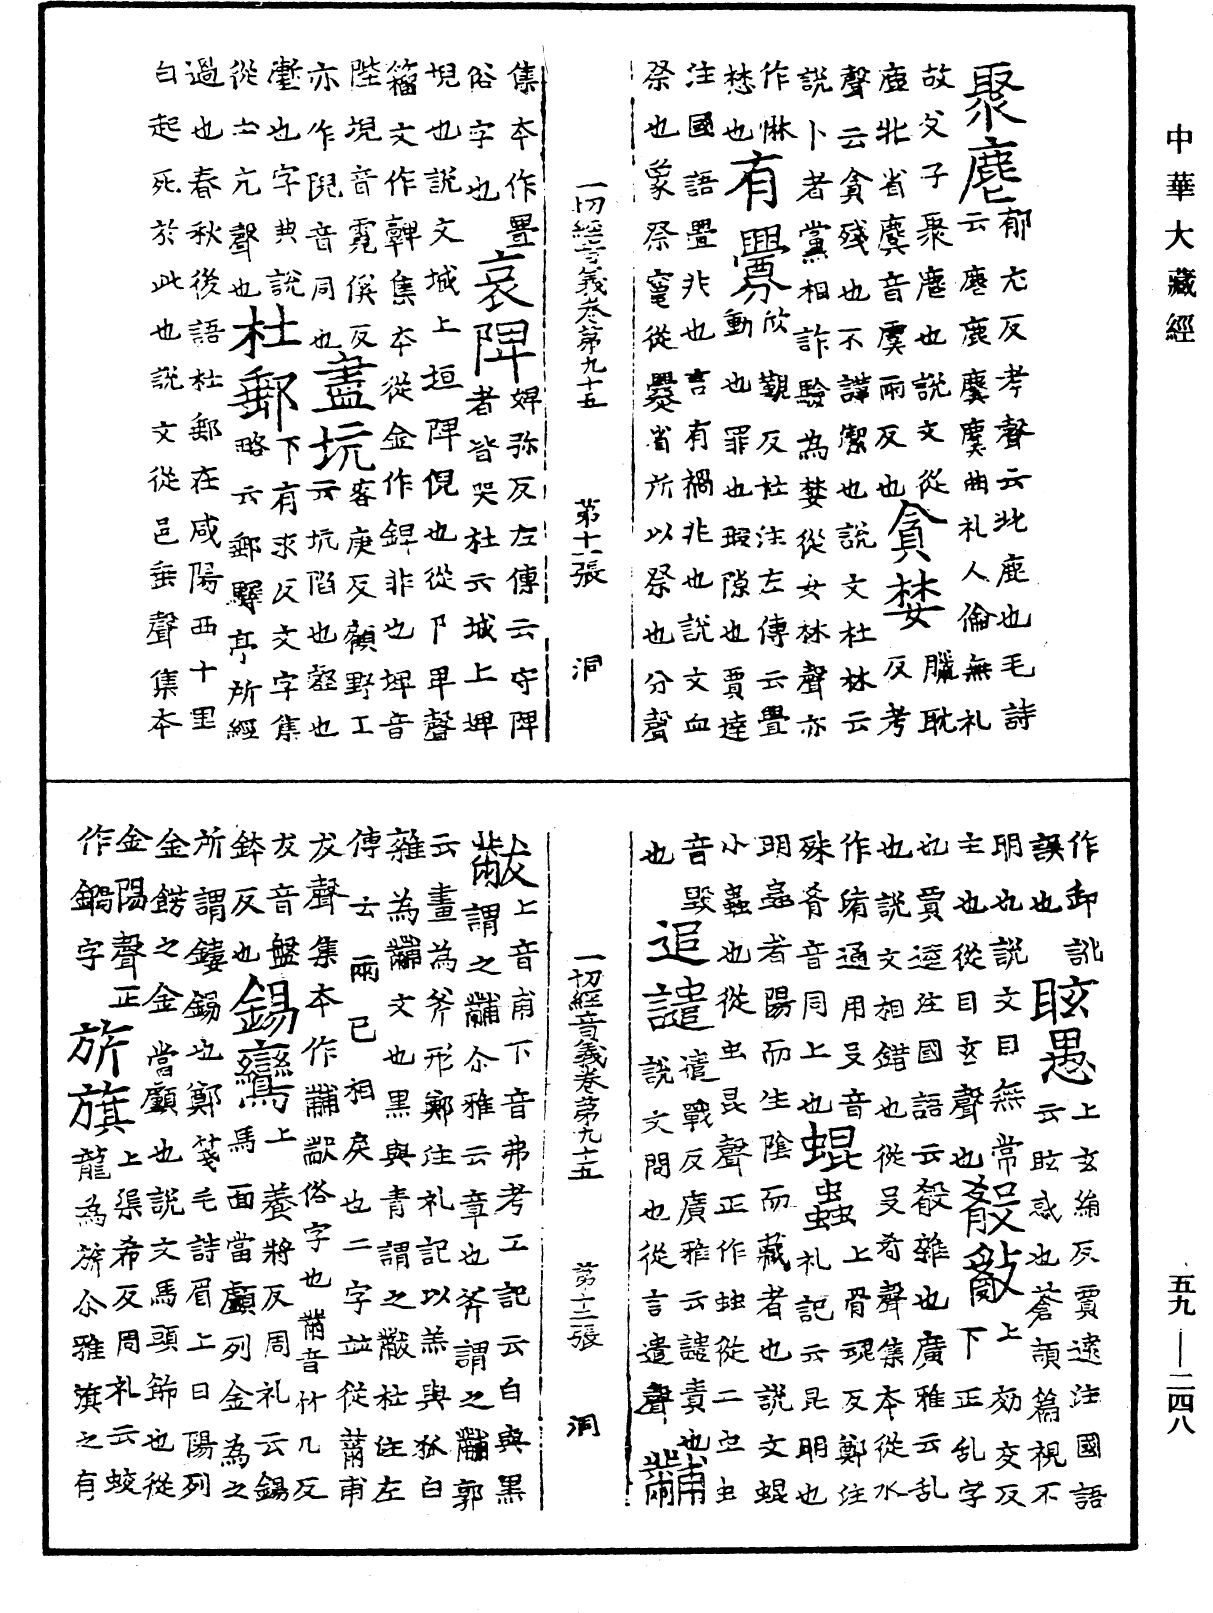 中華大藏經
聚麀郁尤反考聲云牝鹿也毛詩
云麀鹿麌麌曲礼人倫無礼
故父子聚麀也說文從
鹿牝省麌音虞雨反也貪婪臘耽反考
聲云貪殘也不謹潔也說文杜林云
說卜者黨相詐驗為婪從女林聲亦
作惏有釁欣覲反杜注左傳云釁
愁也動也罪也瑕隙也賈逵
注國語釁非也言有禍非也說文血
祭也象祭竈從爨省所以祭也分聲
一切經音義卷第九十五 第十一張 洞
集本作舋哀陴婢弥反左傳云守陴
俗字也者皆哭杜云城上埤
堄也說文城上垣陴倪也從阝卑聲
籀文作𩫖集本從金作錍非也埤音
陛堄音霓傒反盡坑客庚反顧野王
亦作倪音同也云坑陷也壑也
壍也字典說下有求反文字集
從土亢聲也杜郵略云郵驛亭所經
過也春秋後語杜郵在咸陽西十里
白起死於此也說文從邑垂聲集本
作卸訛眩愚上玄絹反賈逵注國語
誤也云眩惑也蒼頡篇視不
明也說文目無常主也從目玄聲也殽亂上効交反
下正乱字
也賈逵注國語云殽雜也廣雅云乱
也說文相錯也從殳肴聲集本從水
作淆通用殳音殊肴音同上也蜫蟲上骨琨反鄭注
礼記云昆明也
明蟲者陽而生陰而藏者也說文蜫
小蟲也從虫昆聲正作䖵從二虫虫
音毀追譴遣戰反廣雅云譴責也
也說文問也從言遣聲黼
黻上音甫下音弗考工記云白與黑
謂之黼尒雅云章也斧謂之黼郭
云畫為斧形鄭注礼記以羔與狐白
雜為黼文也黑與青謂之黻杜注左
傳云兩已相戾也二字並從黹甫
犮聲集本作黼黻俗字也黹音竹几反
犮音盤鉢反也錫鸞上養將反周礼云錫
馬面當盧列金為之
所謂鏤錫也鄭箋毛詩眉上曰陽列
金錺之金當顱也說文馬頭飾也從
金陽聲正作鐊字旂旗上渠希反周礼云蛟
龍為旂尒雅旗之有
一切經音義卷第九十五 第十二張 洞
五九—二四八